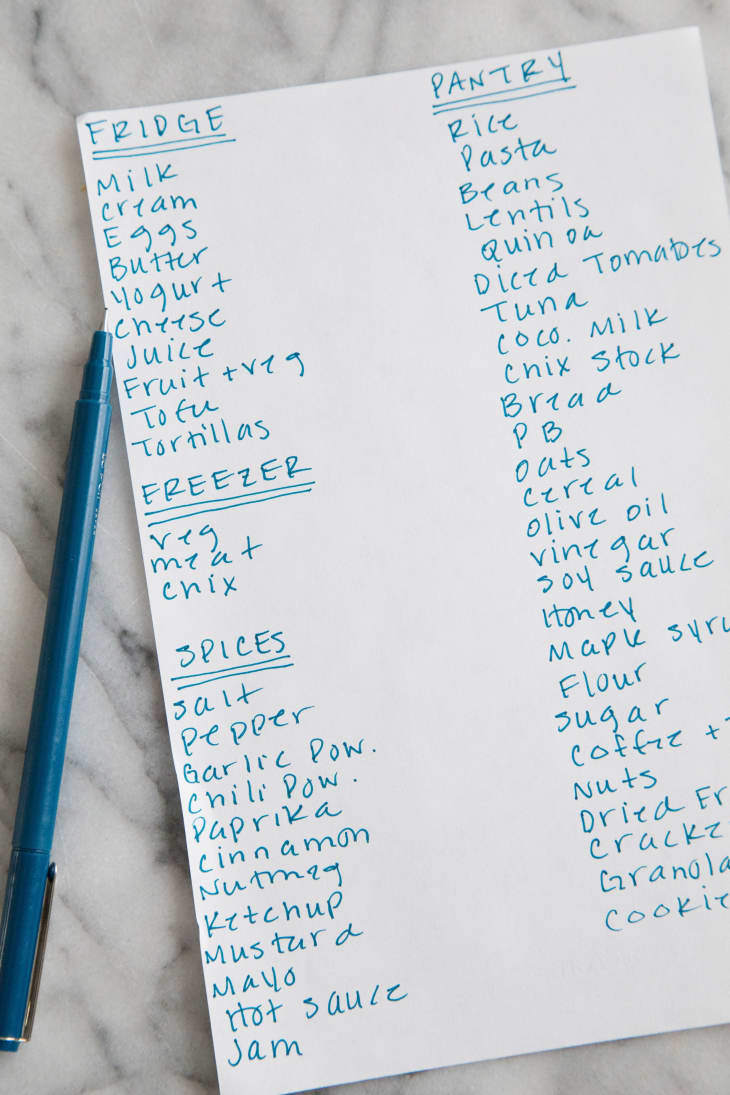 FRIDGE
Milk
Cream
Eggs
Butter
Yogurt
Cheese
Juice
Fruit + veg
Tofu
Tortillas
FREEZER
veg
meat
chix
SPICES
Salt
Pepper
Garlic Pow.
Chili Pow.
Paprika
Cinnamon
Nutmeg
Ketchup
Mustard
Mayo
Hot sauce
Jam
PANTRY
Rice
Pasta
Beans
Lentils
Quinoa
Diced Tomatoes
Tuna
Coco. Milk
Chix Stock
Bread
PB
Oats
Cereal
Olive oil
Vinegar
Soy sauce
Honey
Maple syru
Flour
Sugar
Coffee +
Nuts
Dried Fr
Cracke
Granola
Cookie